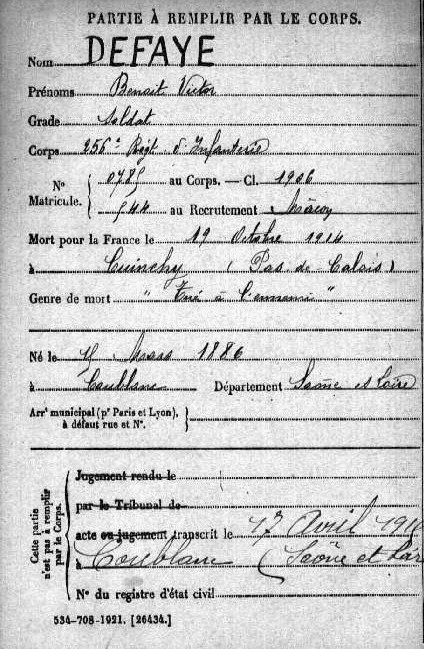 PARTIE À REMPLIR PAR LE CORPS.
Nom DEFAYE
Prénoms Benoit Victor
Grade Soldat
Corps 256e Régt d'Infanterie
No Matricule. { 0785 au Corps. — Cl. 1906
544 au Recrutement Mâcon
Mort pour la France le 19 Octobre 1914
à Cuinchy (Pas de Calais)
Genre de mort "Tué à l'ennemi"
Né le Mars 1886
à Coublanc Département Saône et Loire
Arrt municipal (pr Paris et Lyon), à défaut rue et No. }
Cette partie n'est pas à remplir par le Corps.
Jugement rendu le
par le Tribunal de
acte ou jugement transcrit le 17 Avril
à Coublanc (Saône et Loir
No du registre d'état civil
534-708-1921. [26434.]